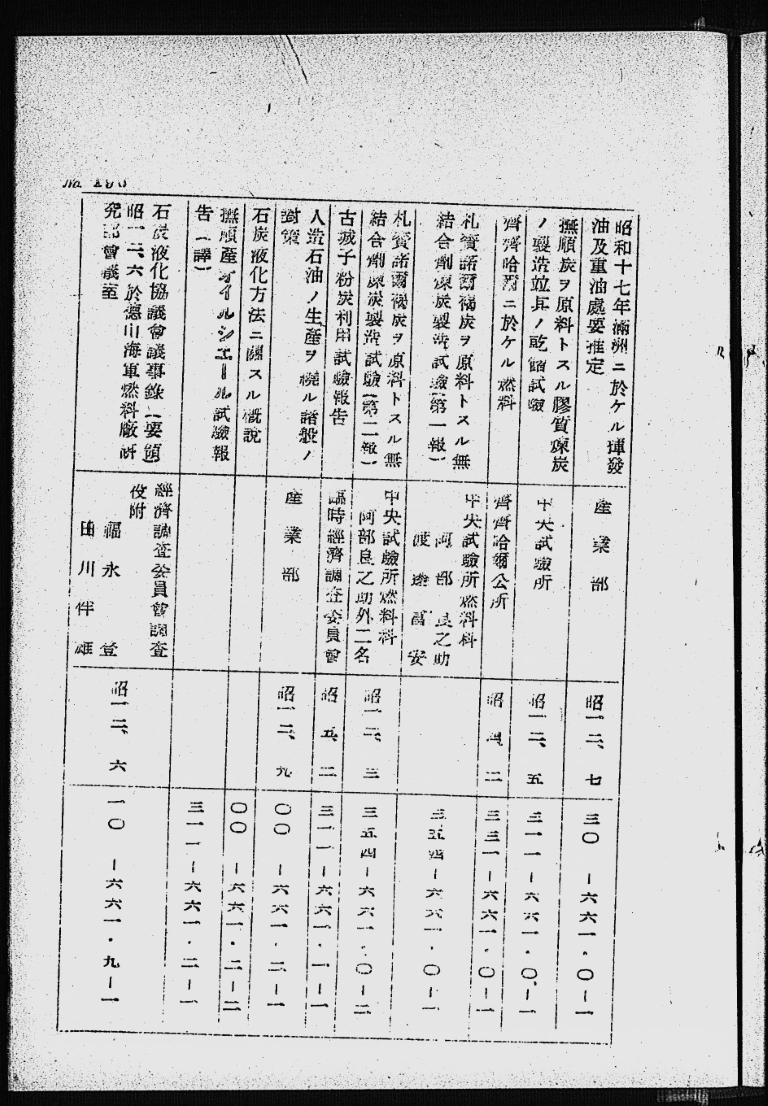 昭和十七年滿洲ニ於ケル揮發
油及重油處要推定
產業部
昭一二、七
三〇—六六一・〇—一
撫順炭ヲ原料トスル膠質煉炭
ノ製造竝其ノ乾餾試驗
中央試驗所
昭一二、五
三一一—六六一・〇—一
齊齊哈爾ニ於ケル燃料
齊齊哈爾公所
昭四、二
三三一—六六一・〇—一
札賚諾爾褐炭ヲ原料トスル無
結合劑煉炭製造試驗(第一報)
中央試驗所燃料科
阿部良之助
渡邊富安
三五四—六六一・〇—一
札賚諾爾褐炭ヲ原料トスル無
結合劑煉炭製造試驗(第二報)
中央試驗所燃料科
阿部良之助外二名
昭一二、三
三五四—六六一・〇—二
古城子粉炭利用試驗報告
臨時經濟調査委員會
昭五、二
三一一—六六一・一—一
人造石油ノ生產ヲ繞ル諸般ノ
對策
產業部
昭一二、九
〇〇—六六一・二—一
石炭液化方法ニ關スル槪說
〇〇—六六一・二—二
撫順產オイルシエール試驗報
告(譯)
三一一—六六一・二—一
石炭液化協議會議事錄(要領)
昭一二、六於德山海軍燃料廠研
究部會議室
經濟調査委員會調査
役附
福永登
田川伴雄
昭一二、六
一〇—六六一・九—一